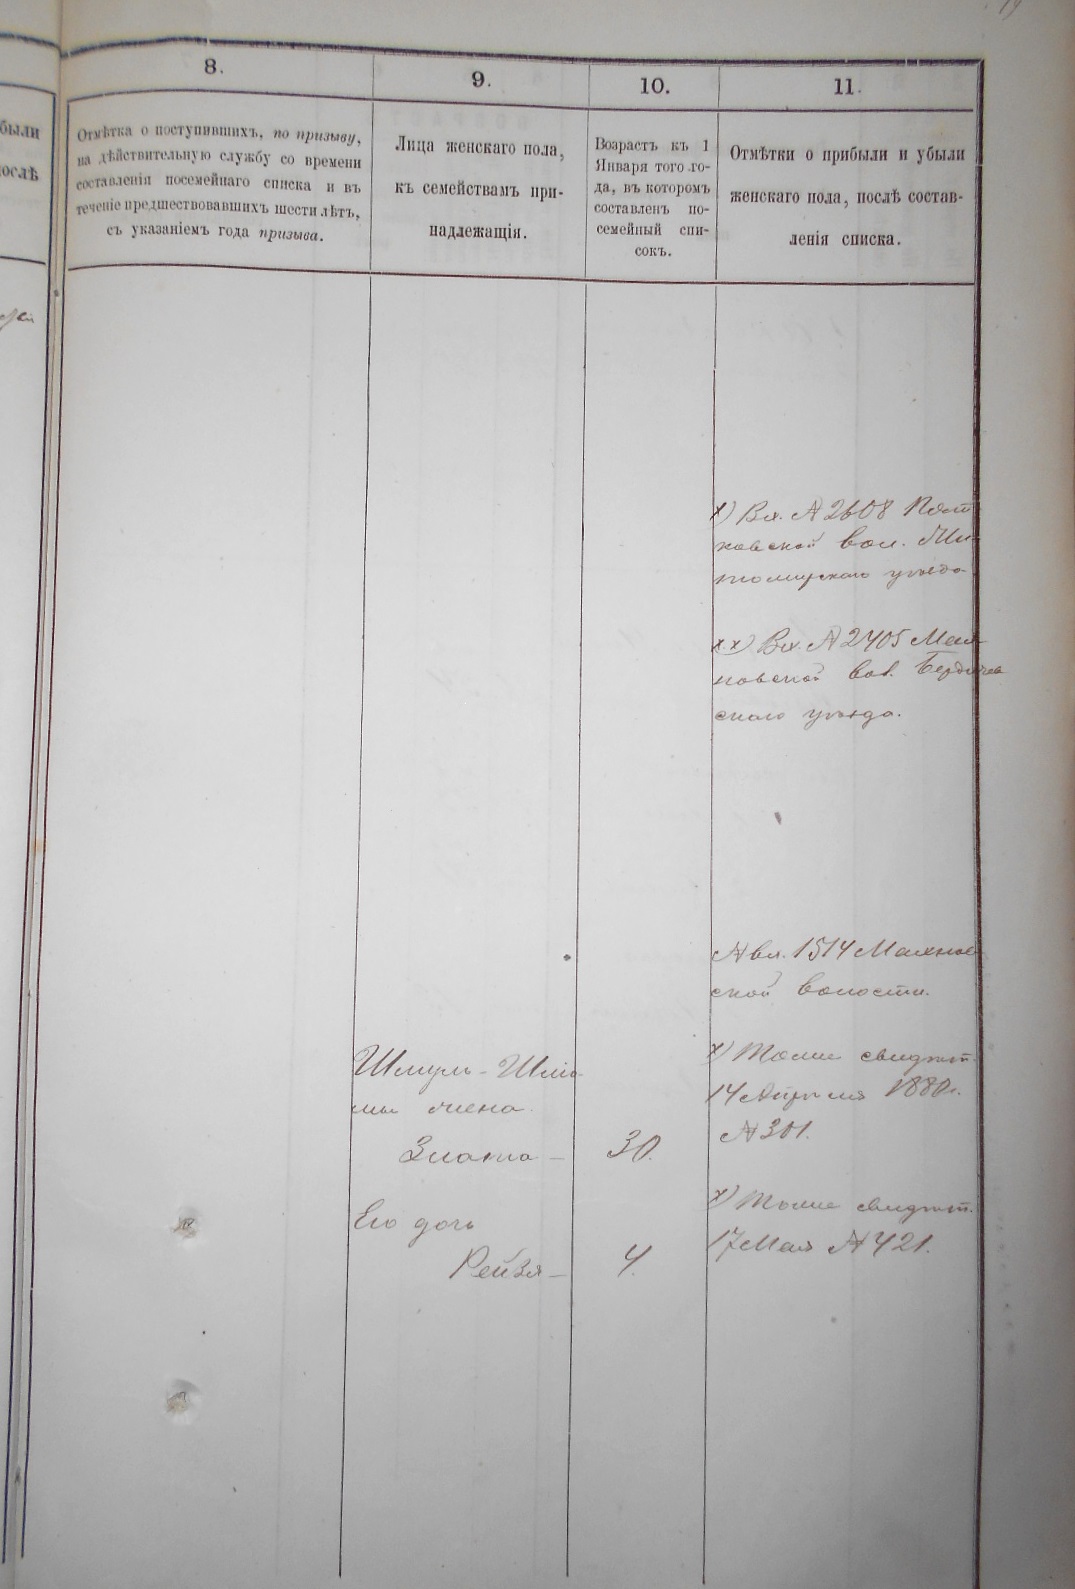 19
были
ослѣ
8.
9.
10.
11.
Отмѣтка о поступившихъ, по призыву,
на дѣйствительную службу со времени
составленія посемейнаго списка и въ
теченіе предшествовавшихъ шести лѣтъ,
съ указаніемъ года призыва.
Лица женскаго пола,
къ семействамъ при-
надлежащія.
Возрастъ къ 1
Января того го-
да, въ которомъ
составленъ по-
семейный спи-
сокъ.
Отмѣтки о прибыли и убыли
женскаго пола, послѣ состав-
ленія списка.
х) Вх. № 2608
новской вол. Жи-
томирскаго уѣзда
хх) Вх. № 2405 Мах-
новской вол. Бердичев
скаго уѣзда.
№ вх. 1514 Махнов
ской волости.
Шмуль-Шлио-
мы жена
Злата —
30.
х) Тоже свидѣт.
14 Апрѣля 1880 г.
№ 301.
Его дочь
Рейзя —
4.
х) Тоже свидѣт.
17 Мая № 421.